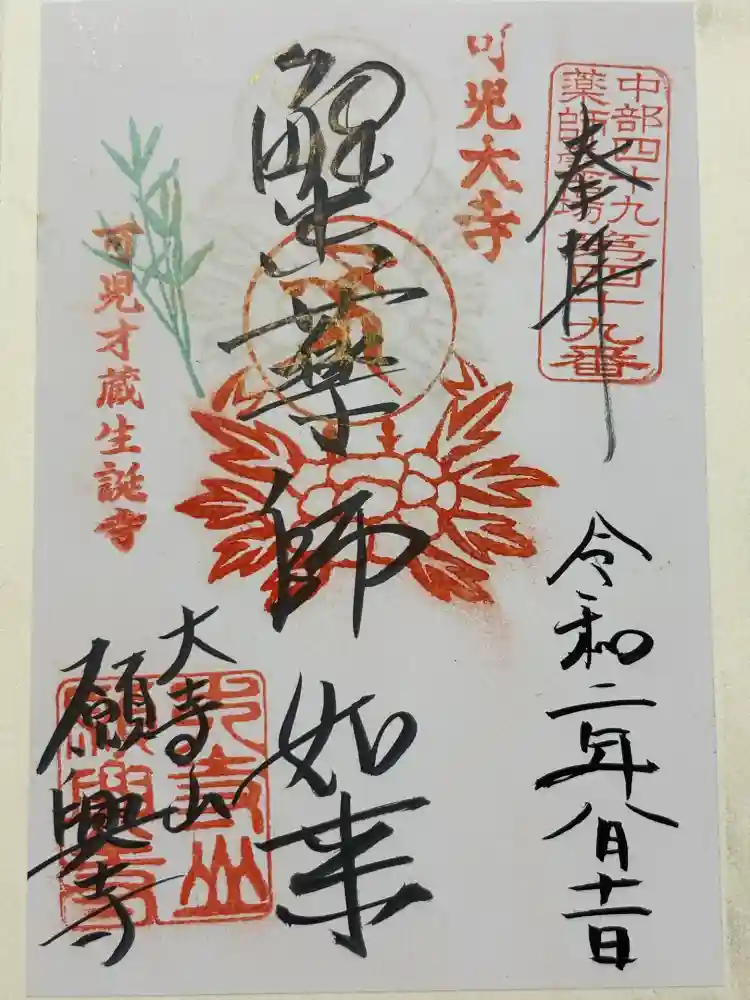 中部四十九
薬師霊場第四十九番
奉拝
令和二年八月十一日
可児大寺
蟹薬師如来
可児才蔵生誕寺
大寺山
願興寺
大寺山
願興寺